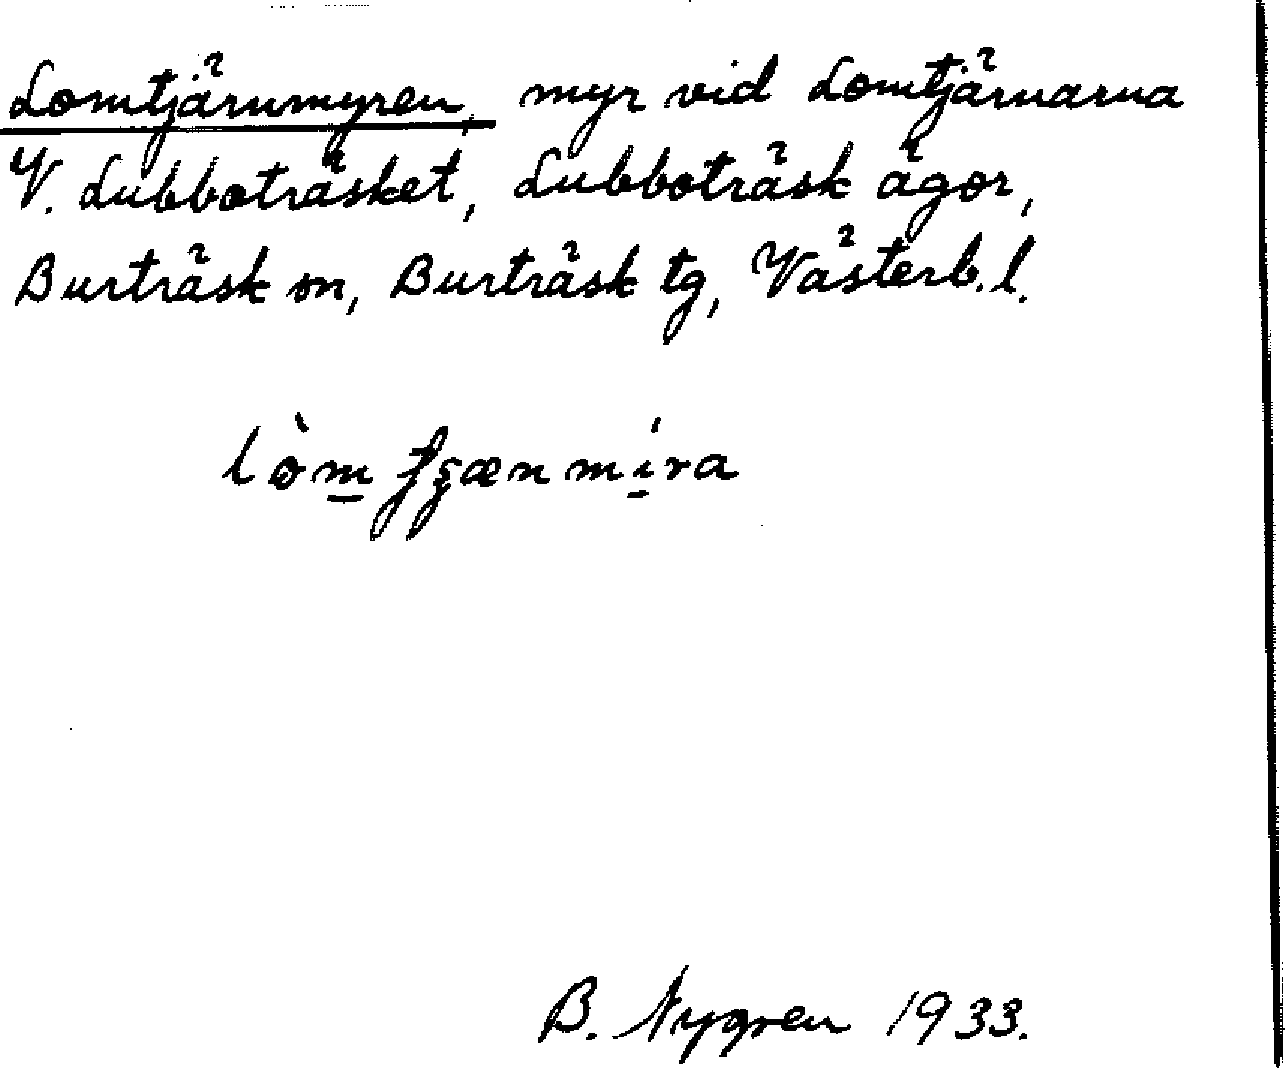 Lomtjärnmyren, myr vid Lomtjärnarna
V. Lubboträsket, Lubboträsk ägor,
Burträsk sn, Burträsk tg, Västerb. l.
B. Nygren 1933.